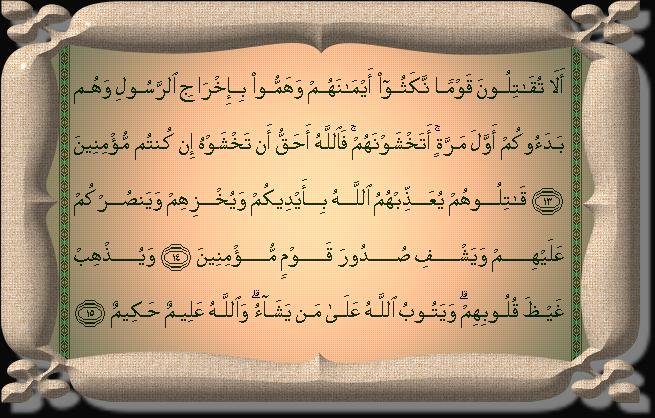 أَلَا تُقَٰتِلُونَ قَوْمًا نَّكَثُوٓا۟ أَيْمَٰنَهُمْ وَهَمُّوا۟ بِإِخْرَاجِ ٱلرَّسُولِ وَهُم
بَدَءُوكُمْ أَوَّلَ مَرَّةٍ ۚ أَتَخْشَوْنَهُمْ ۚ فَٱللَّهُ أَحَقُّ أَن تَخْشَوْهُ إِن كُنتُم مُّؤْمِنِينَ
١٣ قَٰتِلُوهُمْ يُعَذِّبْهُمُ ٱللَّهُ بِأَيْدِيكُمْ وَيُخْزِهِمْ وَيَنصُرْكُمْ
عَلَيْهِمْ وَيَشْفِ صُدُورَ قَوْمٍ مُّؤْمِنِينَ ١٤ وَيُذْهِبْ
غَيْظَ قُلُوبِهِمْ ۗ وَيَتُوبُ ٱللَّهُ عَلَىٰ مَن يَشَآءُ ۗ وَٱللَّهُ عَلِيمٌ حَكِيمٌ ١٥